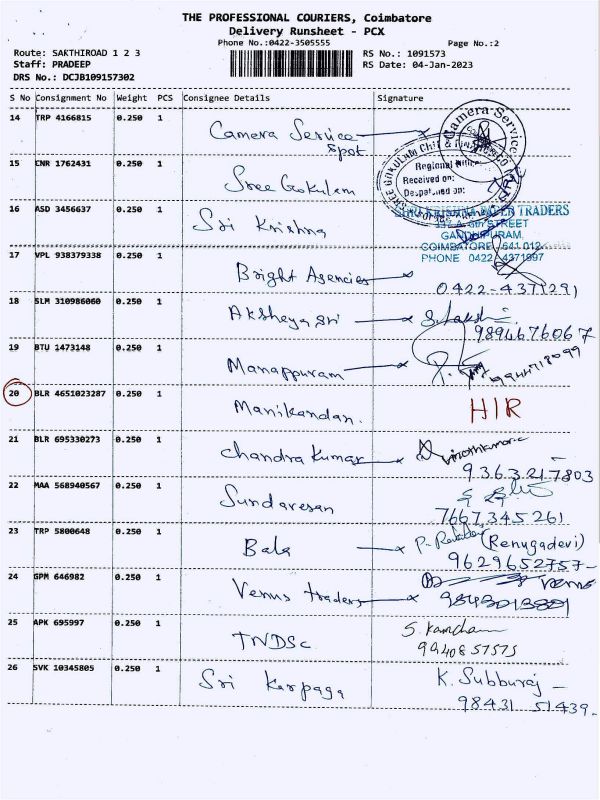 THE PROFESSIONAL COURIERS, Coimbatore
Delivery Runsheet - PCX
Phone No.:0422-3505555 Page No.:2
Route: SAKTHIROAD 1 2 3 RS No.: 1091573
Staff: PRADEEP RS Date: 04-Jan-2023
DRS No.: DCJB109157302
S No Consignment No Weight PCS Consignee Details Signature
14 TRP 4166815 0.250 1 Camera Service Spot
Camera Service
15 CNR 1762431 0.250 1 Sree Gokulam
SREE GOKULAM Chit &
Regional Office
Received on:
Despatched on:
16 ASD 3456637 0.250 1 Sri Krishna
TRADERS
STREET
GANDHIPURAM,
COIMBATORE - 641 012
PHONE 0422 4371897
17 VPL 938379338 0.250 1 Bright Agencies
0422-4371291
18 SLM 310986060 0.250 1 Aksheya Sri
9894676067
19 BTU 1473148 0.250 1 Manappuram
9944718099
20 BLR 4651023287 0.250 1 Manikandan. HIR
21 BLR 695330273 0.250 1 Chandra Kumar
9363217803
22 MAA 568940567 0.250 1 Sundaresan
7667345261
23 TRP 5800648 0.250 1 Bala (Renugadevi)
9629652757-
24 GPM 646982 0.250 1 Venus traders Venus
25 APK 695997 0.250 1 TNDSC
99408 57575
26 SVK 10345805 0.250 1 Sri Karpaga K. Subburaj -
98431 51439-